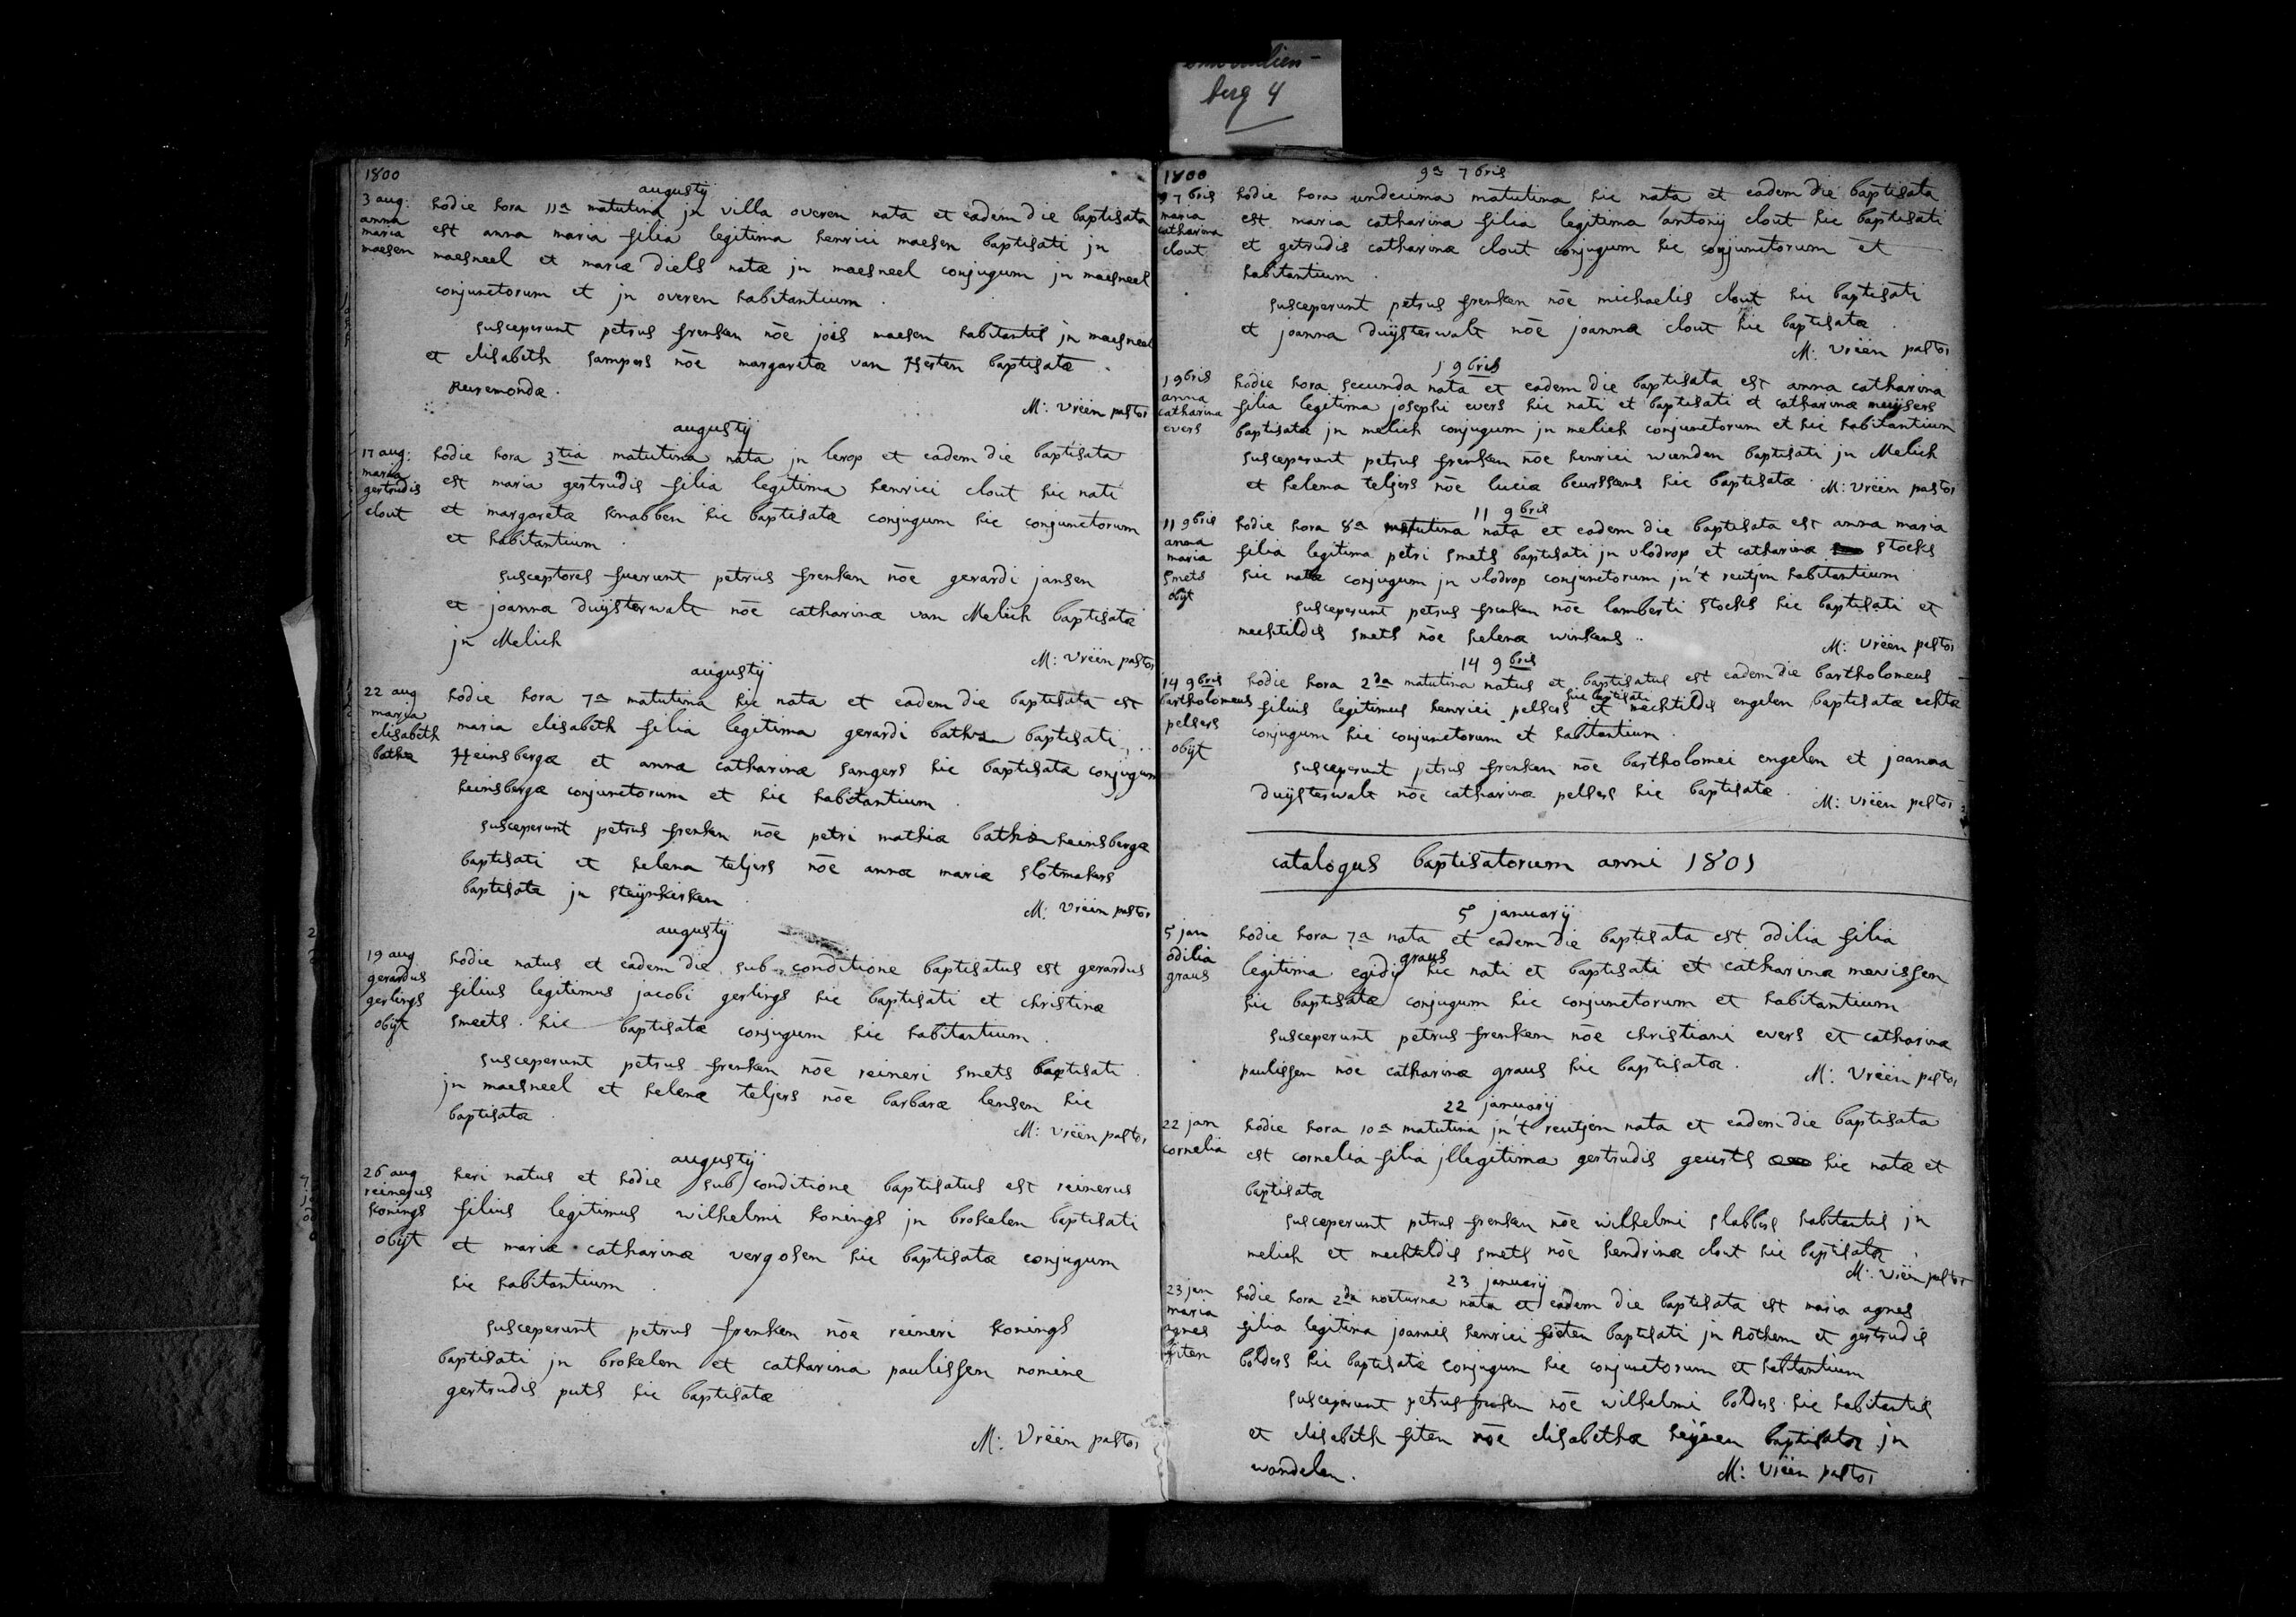 berg 4
1800
augustij
3 aug:
anna
maria
maesen
hodie hora 11a matutina jn villa overen nata et eadem die baptisata
est anna maria filia legitima henrici maesen baptisati jn
maesneel et mariæ diels natæ jn maesneel conjugum jn maesneel
conjunctorum et jn overen habitantium.
susceperunt petrus frenken nõe jois maesen habitantis jn maesneel
et elisabeth sampers nõe margaretæ van Herten baptisatæ
Ruremondæ.
M: Vrëen pastor
augustij
17 aug:
maria
gertrudis
clout
hodie hora 3tia matutina nata jn lerop et eadem die baptisata
est maria gertrudis filia legitima henrici clout hic nati
et margaretæ knabben hic baptisatæ conjugum hic conjunctorum
et habitantium.
susceptores fuerunt petrus frenken nõe gerardi jansen
et joanna duijsterwalt nõe catharinæ van Melich baptisatæ
jn Melich
M: Vrëen pastor
augustij
22 aug
maria
elisabeth
hodie hora 7a matutina hic nata et eadem die baptisata est
maria elisabeth filia legitima gerardi baptisati
Heinsbergæ et annæ catharinæ sangers hic baptisatæ conjugum
heinsbergæ conjunctorum et hic habitantium.
susceperunt petrus frenken nõe petri mathiæ heinsbergæ
baptisati et helena teljers nõe annæ mariæ slotmakers
baptisatæ jn steijnkirken.
M: Vrëen pastor
augustij
19 aug
gerardus
gerlings
obijt
hodie natus et eadem die sub conditione baptisatus est gerardus
filius legitimus jacobi gerlings hic baptisati et christinæ
smeets hic baptisatæ conjugum hic habitantium.
susceperunt petrus frenken nõe reineri smets baptisati
jn maesneel et helena teljers nõe barbaræ lensen hic
baptisatæ.
M: Vrëen pastor
augustij
26 aug
reinerus
konings
obijt
heri natus et hodie sub conditione baptisatus est reinerus
filius legitimus wilhelmi konings jn brokelen baptisati
et mariæ catharinæ vergosen hic baptisatæ conjugum
hic habitantium.
susceperunt petrus frenken nõe reineri konings
baptisati jn brokelen et catharina paulissen nomine
gertrudis puts hic baptisatæ
M: Vrëen pastor
1800
9a 7bris
9 7bris
maria
catharina
clout
hodie hora undecima matutina hic nata et eadem die baptisata
est maria catharina filia legitima antonij clout hic baptisati
et getrudis catharinæ clout conjugum hic conjunctorum et
habitantium.
susceperunt petrus frenken nõe michaelis clout hic baptisati
et joanna duijsterwalt nõe joannæ clout hic baptisatæ.
M: Vrëen pastor
1 9bris
1 9bris
anna
catharina
evers
hodie hora secunda nata et eadem die baptisata est anna catharina
filia legitima josephi evers hic nati et baptisati et catharinæ meuijsers
baptisatæ jn melich conjugum jn melich conjunctorum et hic habitantium
susceperunt petrus frenken nõe henrici wienden baptisati jn Melich
et helena teljers nõe luciæ beurskens hic baptisatæ. M: Vrëen pastor
11 9bris
11 9bris
anna
maria
smets
obijt
hodie hora 8a matutina nata et eadem die baptisata est anna maria
filia legitima petri smets baptisati jn vlodrop et catharinæ stocks
hic natæ conjugum jn vlodrop conjunctorum jn't reutjen habitantium
susceperunt petrus frenken nõe lamberti stocks hic baptisati et
mechtildis smets nõe helenæ winkens..
M: Vrëen pastor
14 9bris
14 9bris
bartholomeus
pelsers
obijt
hodie hora 2da matutina natus et baptisatus est eadem die bartholomeus
filius legitimus henrici pelsers hic baptisati et mechtildis engelen baptisatæ echtæ
conjugum hic conjunctorum et habitantium.
susceperunt petrus frenken nõe bartholomei engelen et joanna
duijsterwalt nõe catharinæ pelsers hic baptisatæ. M: Vrëen pastor
catalogus baptisatorum anni 1801
5 januarij
5 jan
odilia
graus
hodie hora 7a nata et eadem die baptisata est odilia filia
legitima egidij graus hic nati et baptisati et catharinæ mevissen
hic baptisatæ conjugum hic conjunctorum et habitantium
susceperunt petrus frenken nõe christiani evers et catharina
paulissen nõe catharinæ graus hic baptisatæ. M: Vrëen pastor
22 januarij
22 jan
cornelia
hodie hora 10a matutina jn't reutjen nata et eadem die baptisata
est cornelia filia jllegitima gertrudis geurts hic natæ et
baptisatæ
susceperunt petrus frenken nõe wilhelmi slabbers habitantis jn
melich et mechtildis smets nõe hendrinæ clout hic baptisatæ.
M: Vrëen pastor
23 januarij
23 jan
maria
agnes
fiten
hodie hora 2da nocturna nata et eadem die baptisata est maria agnes
filia legitima joannis henrici baptisati jn Rothem et gertrudis
bolders hic baptisatæ conjugum hic conjunctorum et habitantium
susceperunt petrus frenken nõe wilhelmi bolders hic habitantis
et elisabeth fiten nõe elisabethæ baptisatæ jn
wandelen.
M: Vrëen pastor